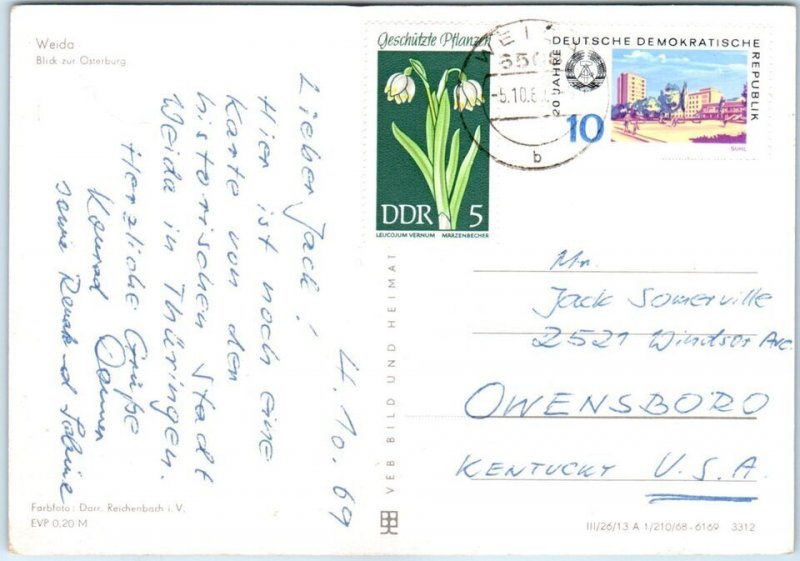 Weida
Blick zur Osterburg
4. 10. 69
Lieber Jack!
Hier ist noch eine
Karte von den
historischen Stadt
Weida in Thüringen.
Herzliche Grüße
Konrad
sowie Renate und Sabine
Farbfoto: Darr, Reichenbach i. V.
EVP 0.20 M
VEB BILD UND HEIMAT
Geschützte Pflanzen
DDR 5
LEUCOJUM VERNUM MÄRZENBECHER
WEI
650
-5.10.6
b
20 JAHRE
DEUTSCHE DEMOKRATISCHE
REPUBLIK
10
SUHL
Mr.
Jack Somerville
2521 Windsor Ave.
OWENSBORO
KENTUCKY U.S.A.
III/26/13 A 1/210/68-6169 3312